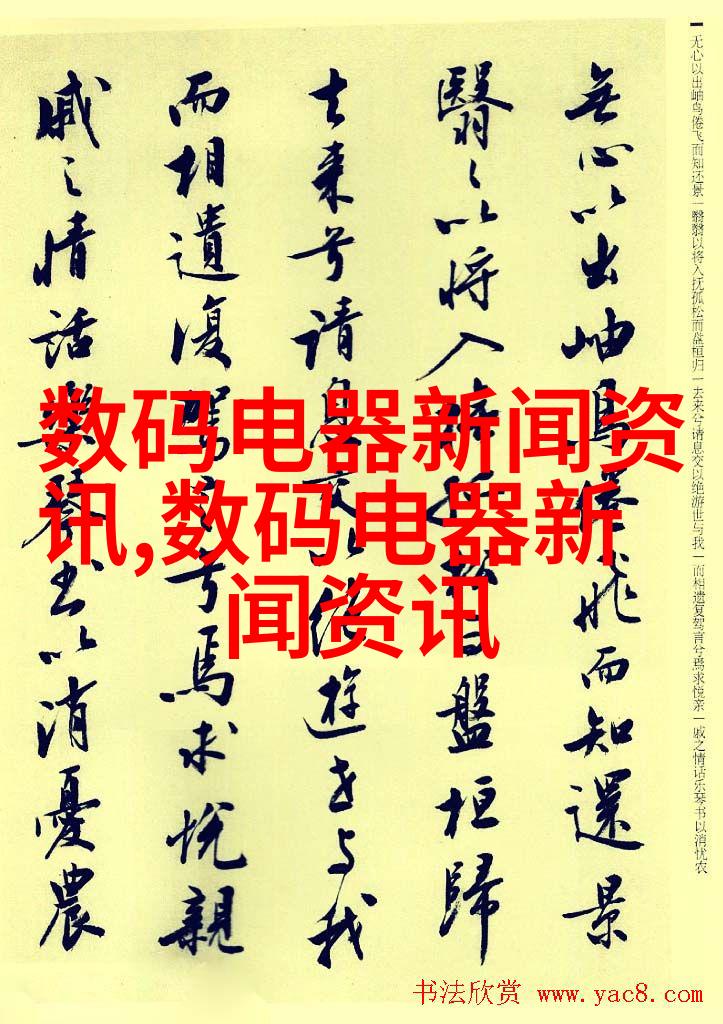 无心以出岫鸟倦飞而知还景一翳翳以将入抚孤松而盘桓归一去来兮请息交以绝游世与我一而相遗复驾言兮焉求悦亲一戚之情话乐琴书以消忧农
無心以出岫鳥倦飛而知還景
翳々以将入撫孤松而盤桓歸
去来兮請息交以絶遊世与我
而相遺復駕言兮焉求悅親
戚之情話樂琴書以消憂農
数码电器新闻资
讯,数码电器新
闻资讯
书法欣赏 www.yac8.com